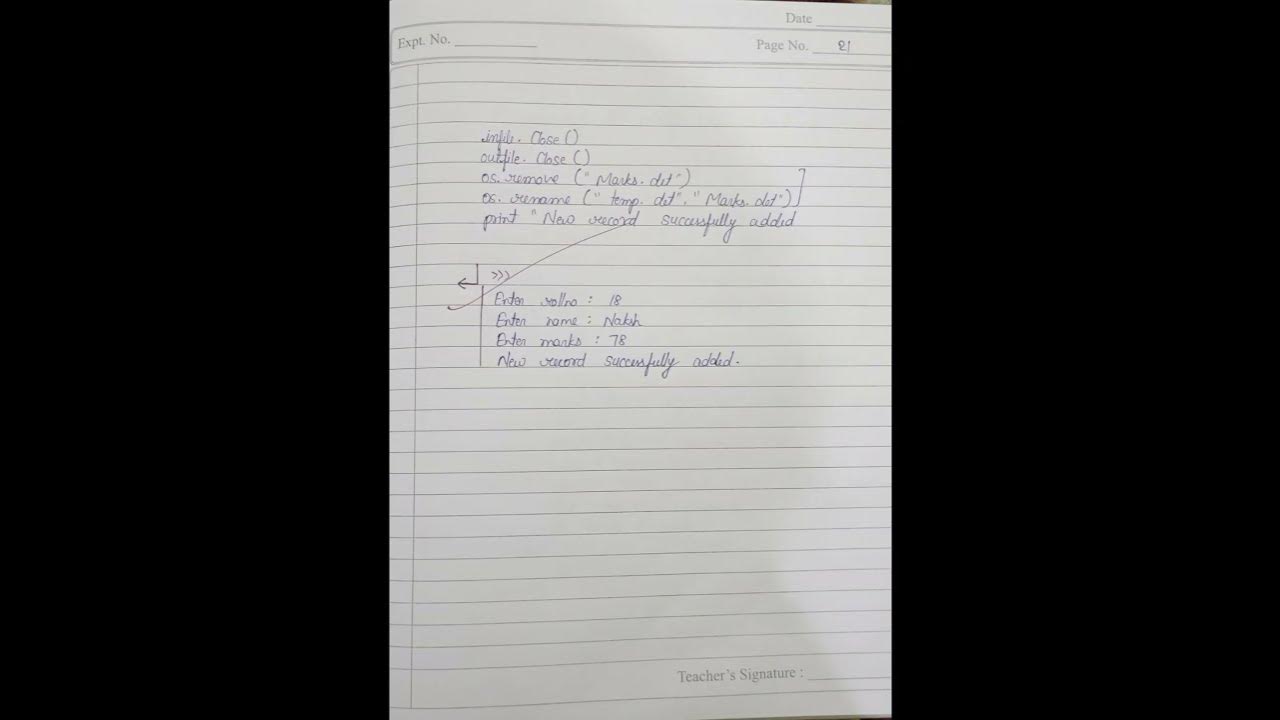 Date
Expt. No.
Page No. 21
infile. Close ()
outfile. Close ()
os. remove (" Marks. dat")
os. rename (" temp. dat", " Marks. dat")
print " New record successfully added
>>>
Enter rollno : 18
Enter name : Naksh
Enter marks : 78
New record successfully added.
Teacher's Signature :